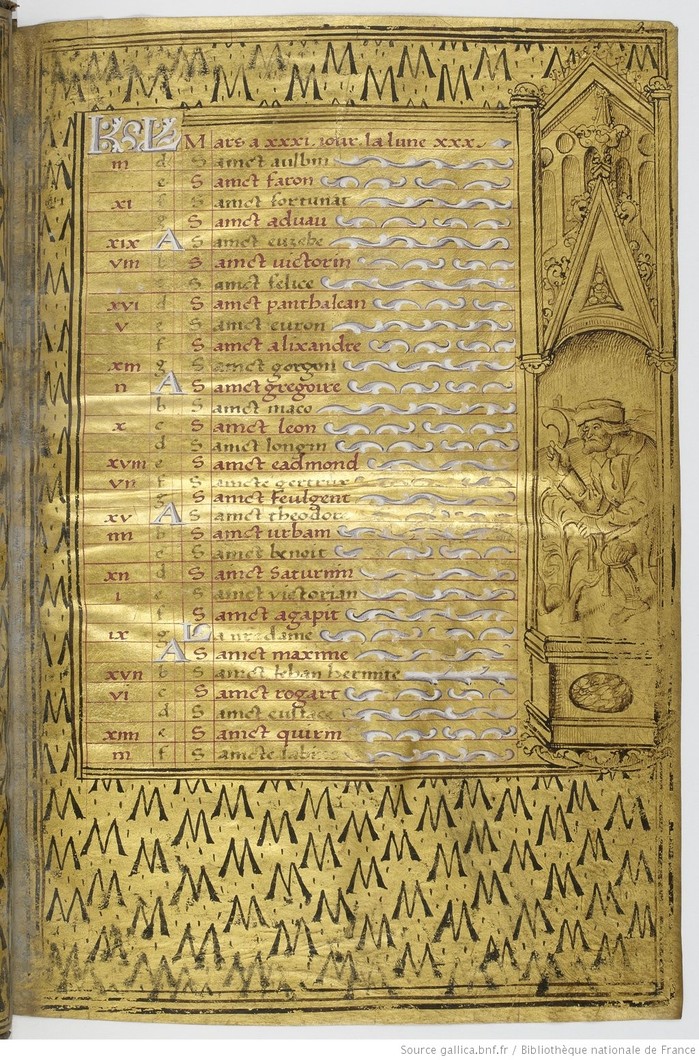 KL Mars a xxxi. iour. la lune xxx.
iii d Sainct aulbin
e Sainct faron
xi f Sainct fortunat
g Sainct aduau
xix A Sainct euzebe
viii b Sainct victorin
c Sainct felice
xvi d Sainct panthalean
v e Sainct euron
f Sainct alixandre
xiii g Sainct gorgon
ii A Sainct gregoire
b Sainct maco
x c Sainct leon
d Sainct longin
xviii e Sainct eadmond
vii f Saincte gertrux
g Sainct feulgent
xv A Sainct theodor
iiii b Sainct urbam
c Sainct benoit
xii d Sainct saturnin
i e Sainct victorian
f Sainct agapit
ix g La nredame
A Sainct maxime
xvii b Sainct Jehan hermite
vi c Sainct rogart
d Sainct eustace
xiiii e Sainct quirin
iii f Saincte
Source gallica.bnf.fr / Bibliothèque nationale de France